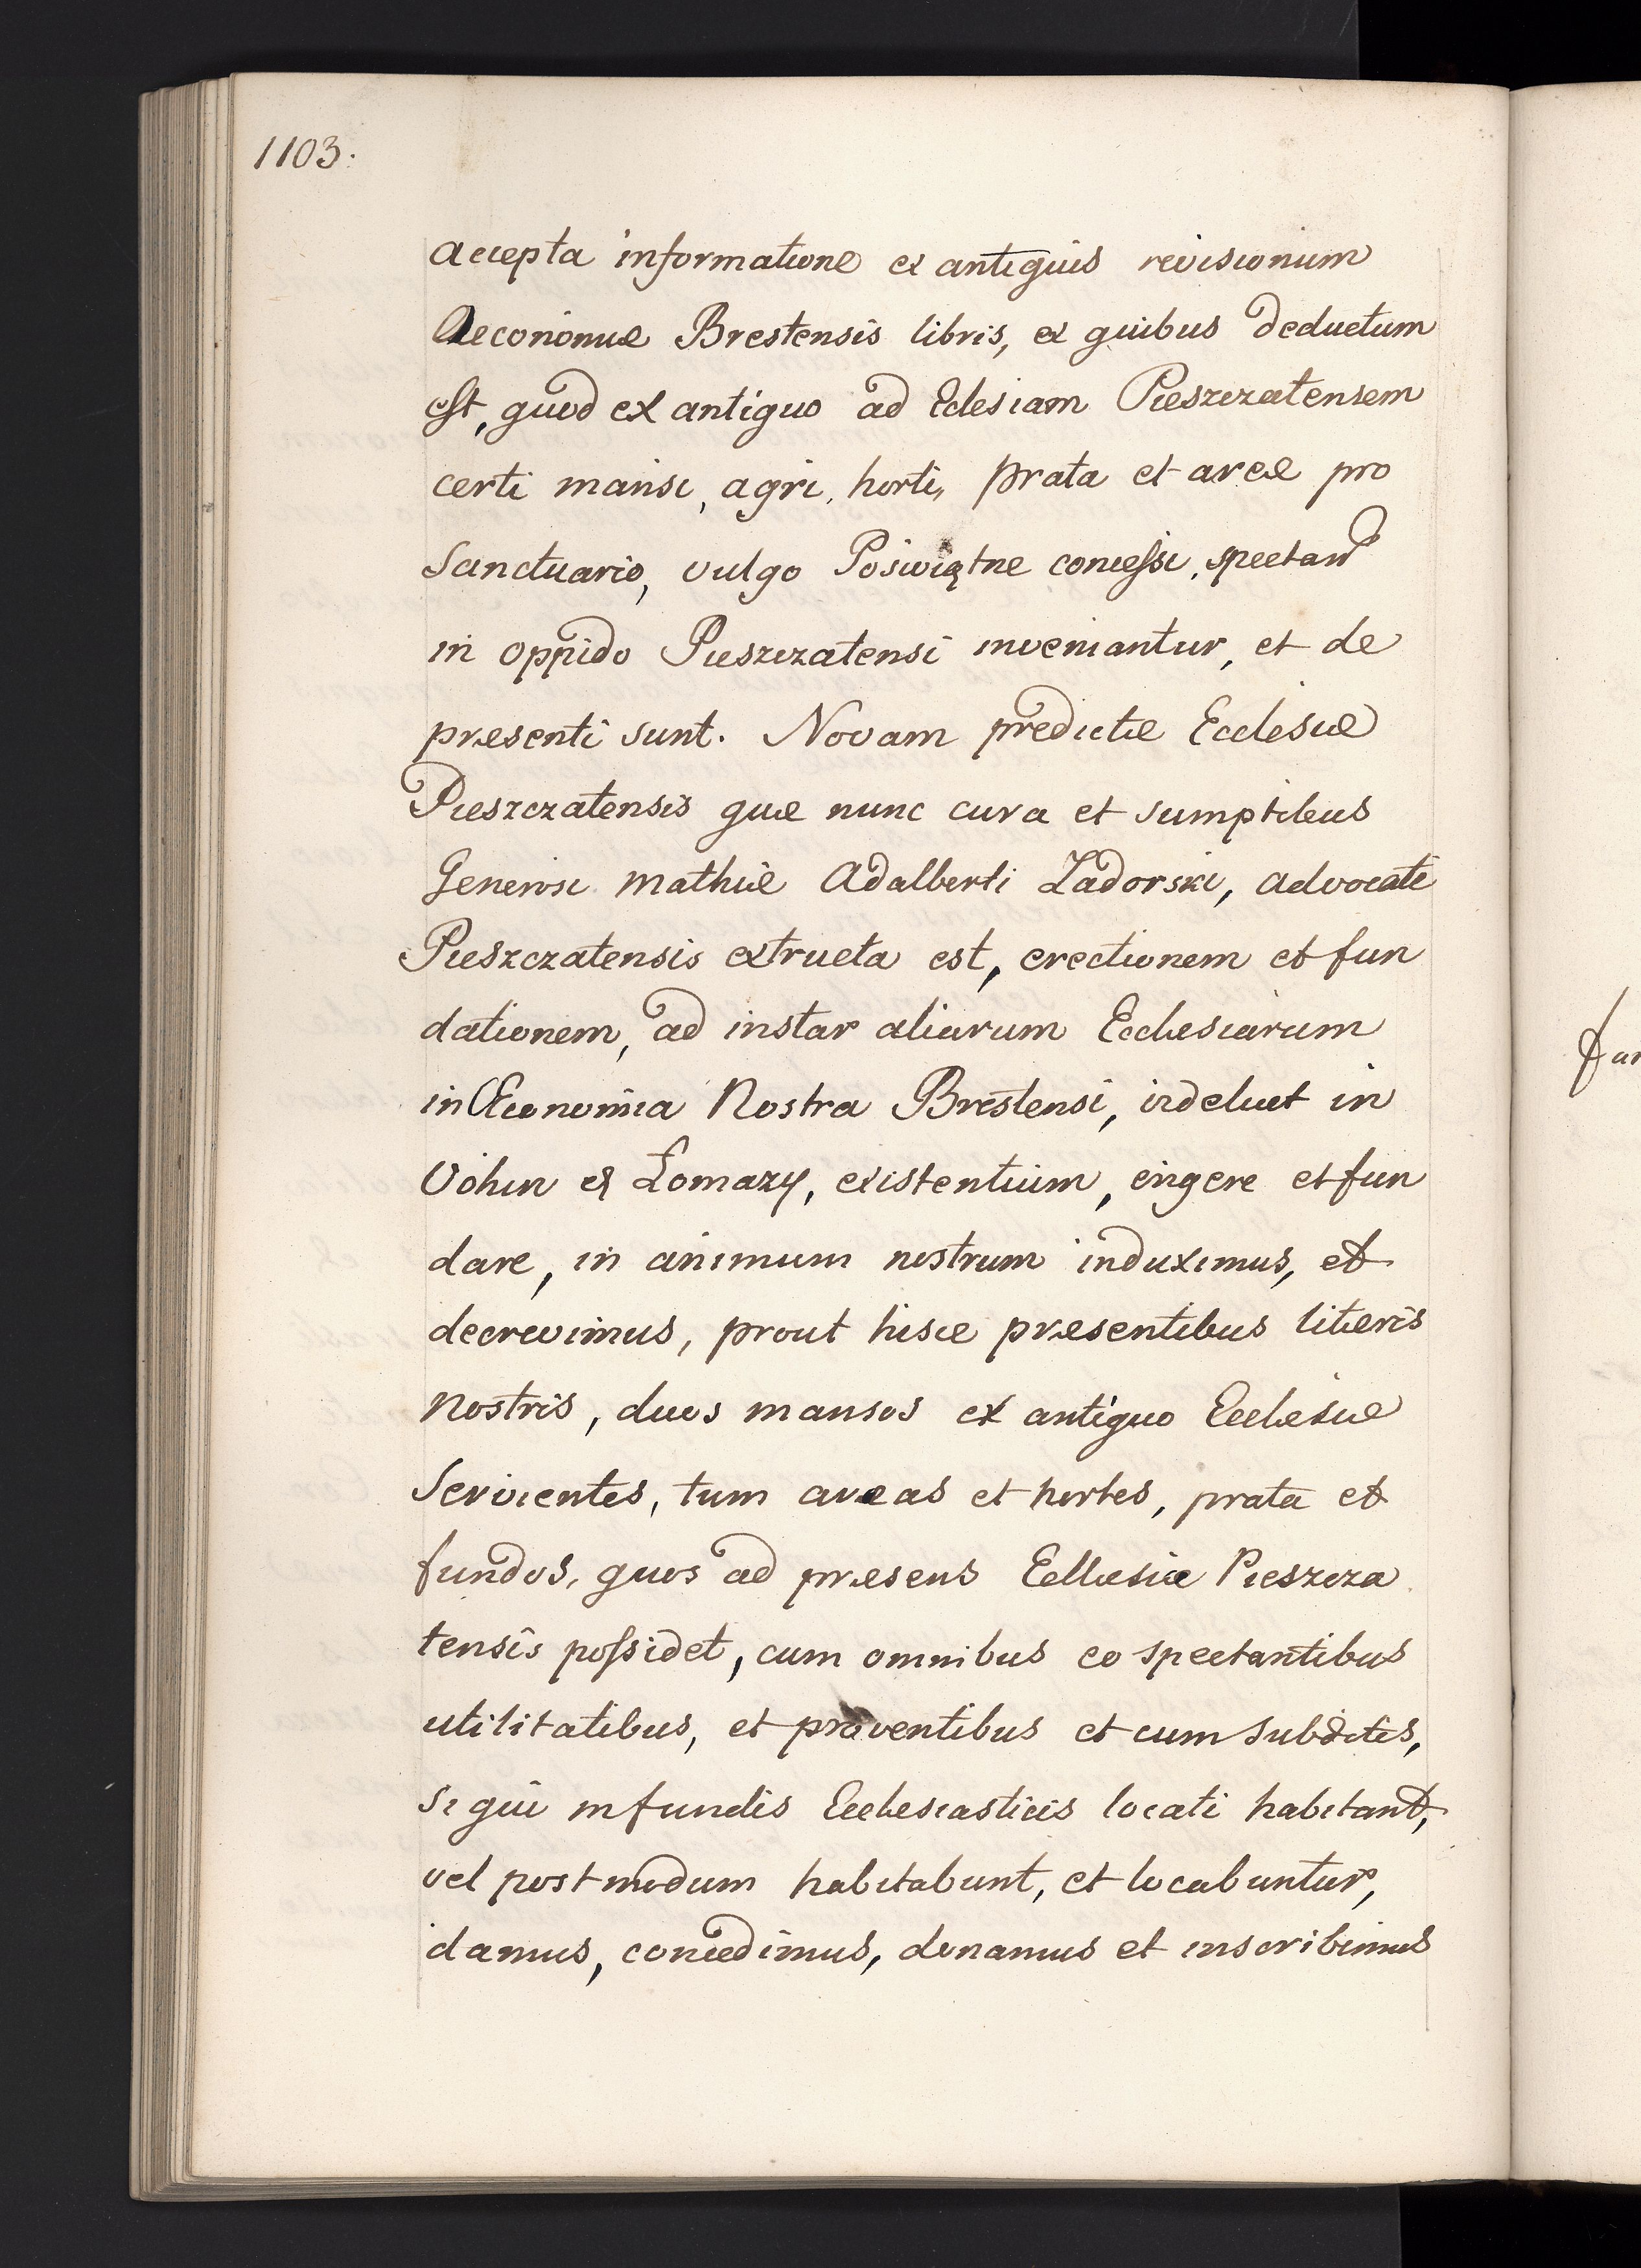 1103.
accepta informatione ex antiquis revisionum
Aeconomiæ Brestensis libris, ex quibus deductum
est, quod ex antiquo ad Eclesiam Pieszczatensem
certi mansi, agri, horti, prata et areæ pro
Sanctuario, vulgo Poświątne concessi, spectant
in oppido Pieszczatensi inveniantur, et de
præsenti sunt. Novam predictæ Ecclesiæ
Pieszczatensis quæ nunc cura et sumptibus
Generosi Mathiæ Adalberti Zadorski, Advocati
Pieszczatensis extructa est, erectionem et fun
dationem, ad instar aliarum Ecclesiarum
in Œconomia Nostra Brestensi, videlicet in
Vohin et Łomazy, existentium, erigere et fun
dare, in animum nostrum induximus, et
decrevimus, prout hisce præsentibus literis
Nostris, duos mansos ex antiquo Ecclesiæ
Servientes, tum areas et hortos, prata et
fundos, quos ad præsens Ecclesia Pieszcza
tensis possidet, cum omnibus eo spectantibus
utilitatibus, et proventibus et cum subditis,
si qui in fundis Ecclesiasticis locati habitant,
vel postmodum habitabunt, et locabuntur,
damus, concedimus, donamus et inscribimus